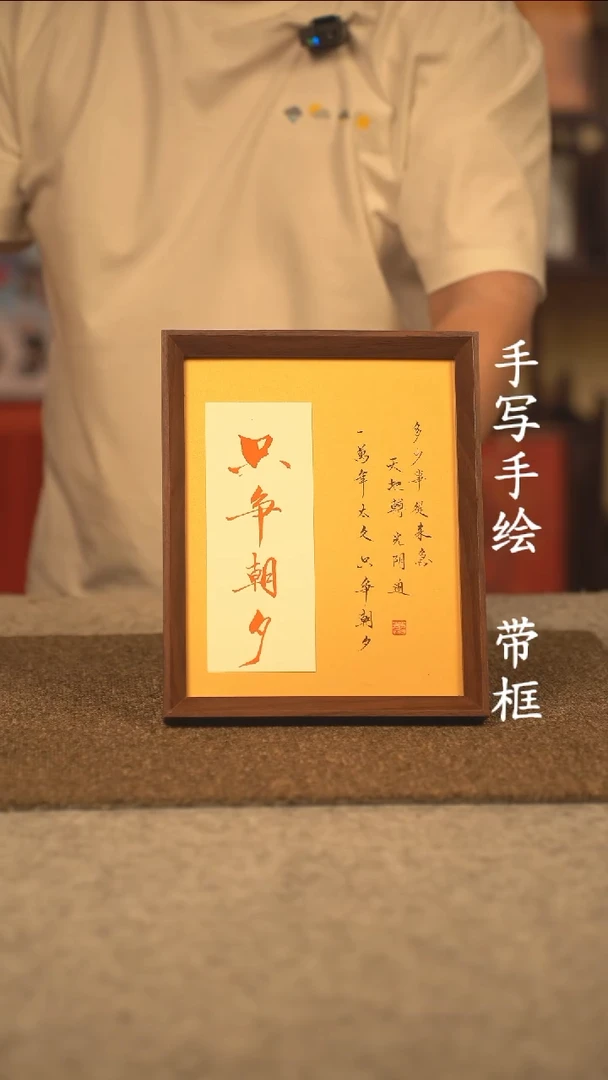 只争朝夕
多少事從来急
天地轉光阴迫
一萬年太久只争朝夕
手写手绘 带框